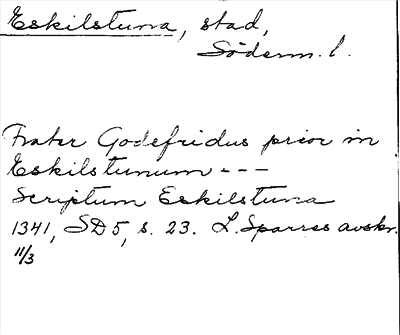 Eskilstuna, stad,
Söderm. l.
Frater Godefridus prior in
Eskilstunum ---
Scriptum Eskilstuna
1341, SD 5, s. 23. L. Sparres avskr.
11/3